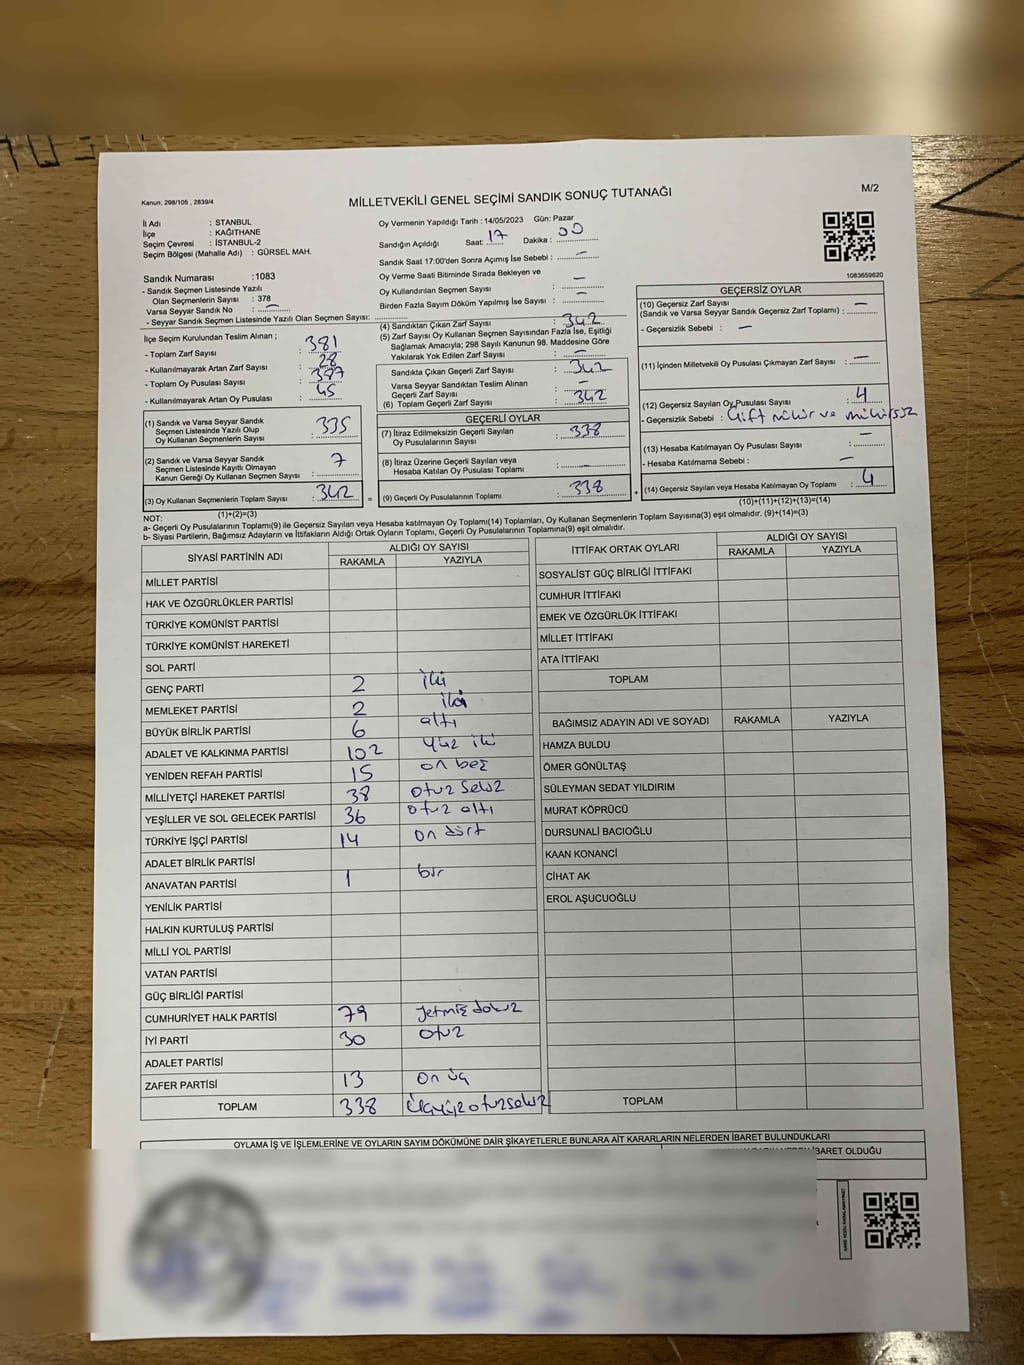 Kanun: 298/105 , 2839/4
MİLLETVEKİLİ GENEL SEÇİMİ SANDIK SONUÇ TUTANAĞI
M/2
İl Adı : STANBUL
İlçe : KAĞITHANE
Seçim Çevresi : İSTANBUL-2
Seçim Bölgesi (Mahalle Adı) : GÜRSEL MAH.
Oy Vermenin Yapıldığı Tarih : 14/05/2023 Gün: Pazar
Sandığın Açıldığı Saat: 17 Dakika : 00
Sandık Saat 17:00'den Sonra Açımış İse Sebebi : —
Oy Verme Saati Bitiminde Sırada Bekleyen ve
Oy Kullandırılan Seçmen Sayısı : —
Birden Fazla Sayım Döküm Yapılmış İse Sayısı : —
1083659620
Sandık Numarası :1083
- Sandık Seçmen Listesinde Yazılı
Olan Seçmenlerin Sayısı : 378
Varsa Seyyar Sandık No : —
- Seyyar Sandık Seçmen Listesinde Yazılı Olan Seçmen Sayısı:
İlçe Seçim Kurulundan Teslim Alınan ;
- Toplam Zarf Sayısı : 381
- Kullanılmayarak Artan Zarf Sayısı : 28
- Toplam Oy Pusulası Sayısı : 387
- Kullanılmayarak Artan Oy Pusulası : 45
(1) Sandık ve Varsa Seyyar Sandık
Seçmen Listesinde Yazılı Olup
Oy Kullanan Seçmenlerin Sayısı : 335
(2) Sandık ve Varsa Seyyar Sandık
Seçmen Listesinde Kayıtlı Olmayan
Kanun Gereği Oy Kullanan Seçmen Sayısı : 7
(3) Oy Kullanan Seçmenlerin Toplam Sayısı : 342
(1)+(2)=(3)
=
(4) Sandıktan Çıkan Zarf Sayısı : 342
(5) Zarf Sayısı Oy Kullanan Seçmen Sayısından Fazla İse, Eşitliği
Sağlamak Amacıyla; 298 Sayılı Kanunun 98. Maddesine Göre
Yakılarak Yok Edilen Zarf Sayısı : —
Sandıkta Çıkan Geçerli Zarf Sayısı : 342
Varsa Seyyar Sandıktan Teslim Alınan
Geçerli Zarf Sayısı : —
(6) Toplam Geçerli Zarf Sayısı : 342
GEÇERLİ OYLAR
(7) İtiraz Edilmeksizin Geçerli Sayılan
Oy Pusulalarının Sayısı : 338
(8) İtiraz Üzerine Geçerli Sayılan veya
Hesaba Katılan Oy Pusulası Toplamı : —
(9) Geçerli Oy Pusulalarının Toplamı : 338
+
GEÇERSİZ OYLAR
(10) Geçersiz Zarf Sayısı
(Sandık ve Varsa Seyyar Sandık Geçersiz Zarf Toplamı) : —
- Geçersizlik Sebebi : —
(11) İçinden Milletvekili Oy Pusulası Çıkmayan Zarf Sayısı : —
(12) Geçersiz Sayılan Oy Pusulası Sayısı : 4
- Geçersizlik Sebebi : Çift mühür ve mühürsüz
(13) Hesaba Katılmayan Oy Pusulası Sayısı : —
- Hesaba Katılmama Sebebi : —
(14) Geçersiz Sayılan veya Hesaba Katılmayan Oy Toplamı : 4
(10)+(11)+(12)+(13)=(14)
NOT:
a- Geçerli Oy Pusulalarının Toplamı(9) ile Geçersiz Sayılan veya Hesaba katılmayan Oy Toplamı(14) Toplamları, Oy Kullanan Seçmenlerin Toplam Sayısına(3) eşit olmalıdır. (9)+(14)=(3)
b- Siyasi Partilerin, Bağımsız Adayların ve İttifakların Aldığı Ortak Oyların Toplamı, Geçerli Oy Pusulalarının Toplamına(9) eşit olmalıdır.
SİYASİ PARTİNİN ADI ALDIĞI OY SAYISI
RAKAMLA YAZIYLA
MİLLET PARTİSİ
HAK VE ÖZGÜRLÜKLER PARTİSİ
TÜRKİYE KOMÜNİST PARTİSİ
TÜRKİYE KOMÜNİST HAREKETİ
SOL PARTİ
GENÇ PARTİ 2 iki
MEMLEKET PARTİSİ 2 iki
BÜYÜK BİRLİK PARTİSİ 6 altı
ADALET VE KALKINMA PARTİSİ 102 yüz iki
YENİDEN REFAH PARTİSİ 15 on beş
MİLLİYETÇİ HAREKET PARTİSİ 38 otuz sekiz
YEŞİLLER VE SOL GELECEK PARTİSİ 36 otuz altı
TÜRKİYE İŞÇİ PARTİSİ 14 on dört
ADALET BİRLİK PARTİSİ
ANAVATAN PARTİSİ 1 bir
YENİLİK PARTİSİ
HALKIN KURTULUŞ PARTİSİ
MİLLİ YOL PARTİSİ
VATAN PARTİSİ
GÜÇ BİRLİĞİ PARTİSİ
CUMHURİYET HALK PARTİSİ 79 yetmiş dokuz
İYİ PARTİ 30 otuz
ADALET PARTİSİ
ZAFER PARTİSİ 13 on üç
TOPLAM 338 üçyüz otuz sekiz
İTTİFAK ORTAK OYLARI ALDIĞI OY SAYISI
RAKAMLA YAZIYLA
SOSYALİST GÜÇ BİRLİĞİ İTTİFAKI
CUMHUR İTTİFAKI
EMEK VE ÖZGÜRLÜK İTTİFAKI
MİLLET İTTİFAKI
ATA İTTİFAKI
TOPLAM
BAĞIMSIZ ADAYIN ADI VE SOYADI RAKAMLA YAZIYLA
HAMZA BULDU
ÖMER GÖNÜLTAŞ
SÜLEYMAN SEDAT YILDIRIM
MURAT KÖPRÜCÜ
DURSUNALİ BACIOĞLU
KAAN KONANCİ
CİHAT AK
EROL AŞUCUOĞLU
TOPLAM
OYLAMA İŞ VE İŞLEMLERİNE VE OYLARIN SAYIM DÖKÜMÜNE DAİR ŞİKAYETLERLE BUNLARA AİT KARARLARIN NELERDEN İBARET BULUNDUKLARI
İBARET OLDUĞU